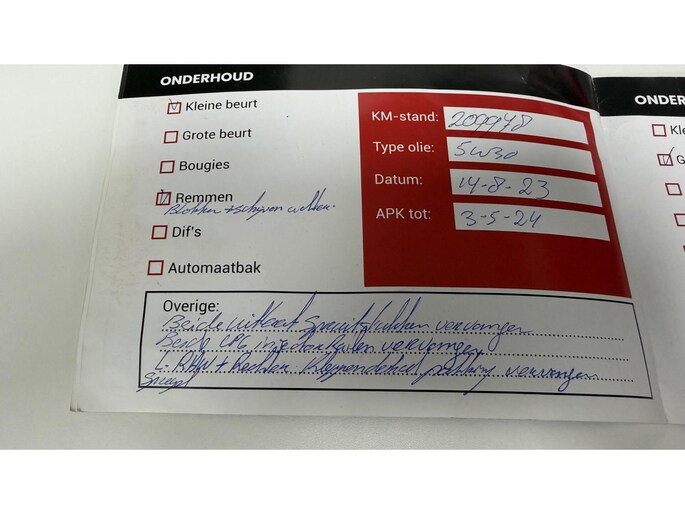 ONDERHOUD
Kleine beurt
Grote beurt
Bougies
Remmen
Blokken + schijven achter.
Dif's
Automaatbak
KM-stand: 209948
Type olie: 5W30
Datum: 14-8-23
APK tot: 3-5-24
Overige:
Beide uitlaat spruitstukken vervangen
Beide LPG injector Railen vervangen
L + Rechter Kleppendeksel pakking vervangen
ONDER
Kle
G